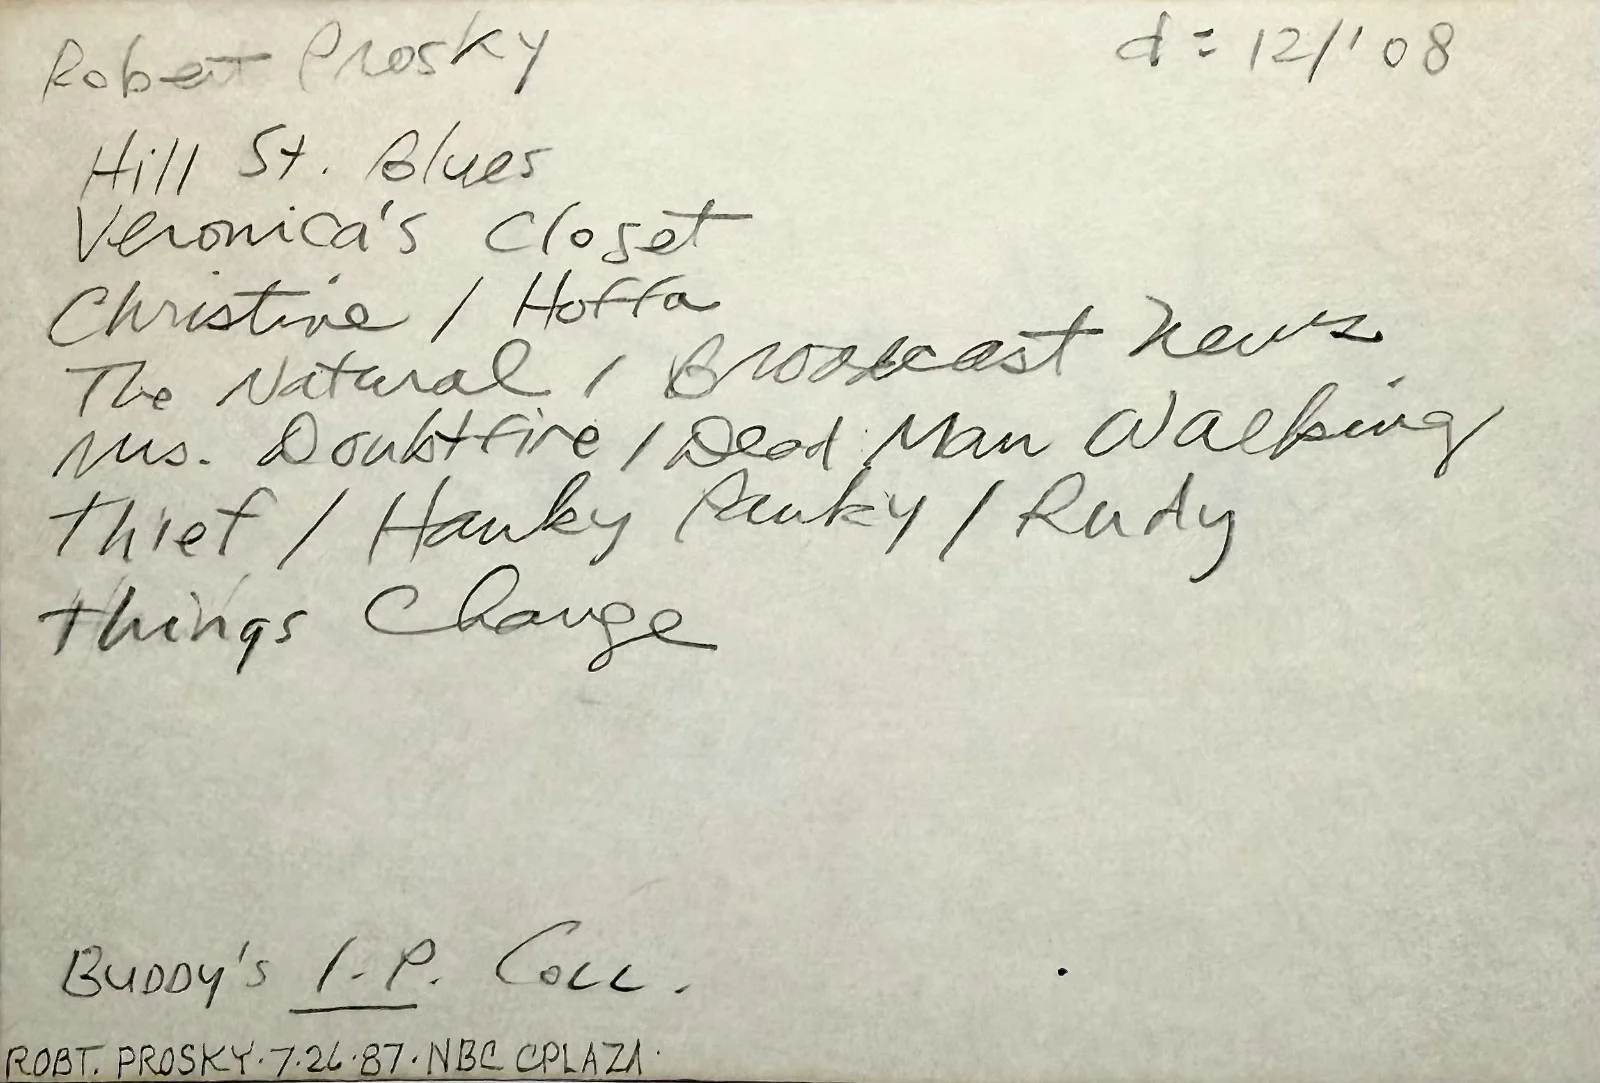 Robert Prosky d= 12/'08
Hill St. Blues
Veronica's Closet
Christine / Hoffa
The Natural / Broadcast News
Mrs. Doubtfire / Dead Man Walking
Thief / Hanky Panky / Rudy
Things Change
BUDDY'S I.P. COLL.
ROBT. PROSKY·7·26·87·NBC CPLAZA·